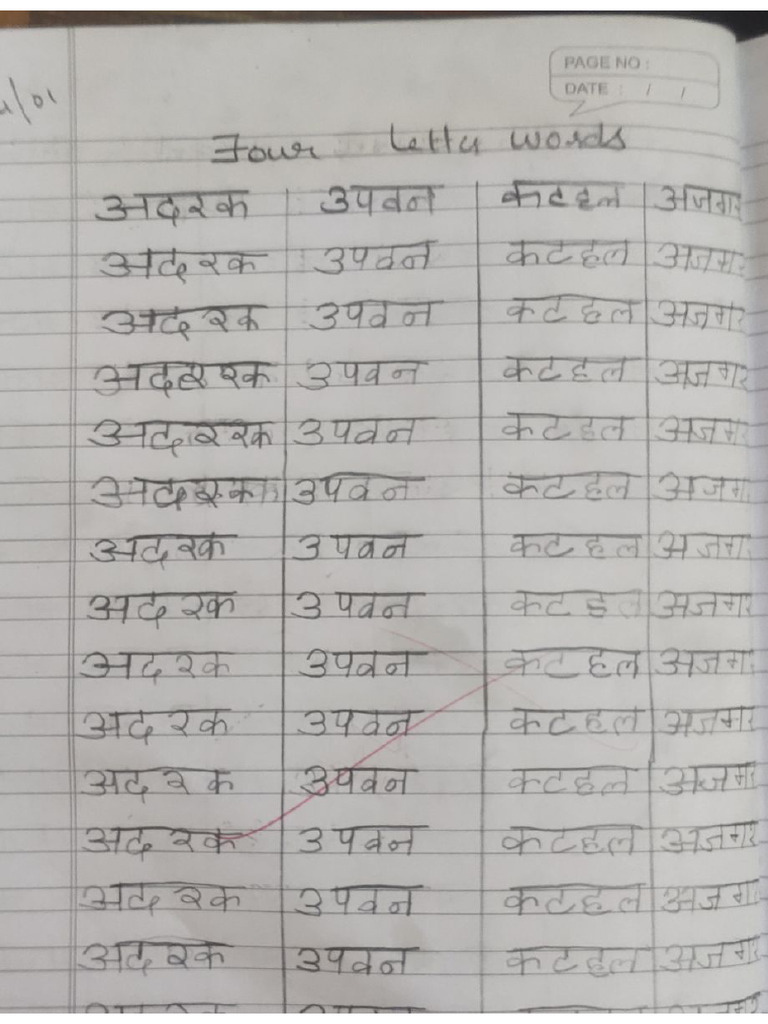 PAGE NO :
DATE : / /
Four letter words
अदरक उपवन कटहल अजगर
अदरक उपवन कटहल अजगर
अदरक उपवन कटहल अजगर
अदररक उपवन कटहल अजगर
अदररक उपवन कटहल अजग
अदरक उपवन कटहल अजग
अदरक उपवन कटहल अजग
अदरक उपवन कटहल अजगर
अदरक उपवन कटहल अजग
अदरक उपवन कटहल अजगर
अदरक उपवन कटहल अजग
अदरक उपवन कटहल अजगर
अदरक उपवन कटहल अजग
अदरक उपवन कटहल अजगर